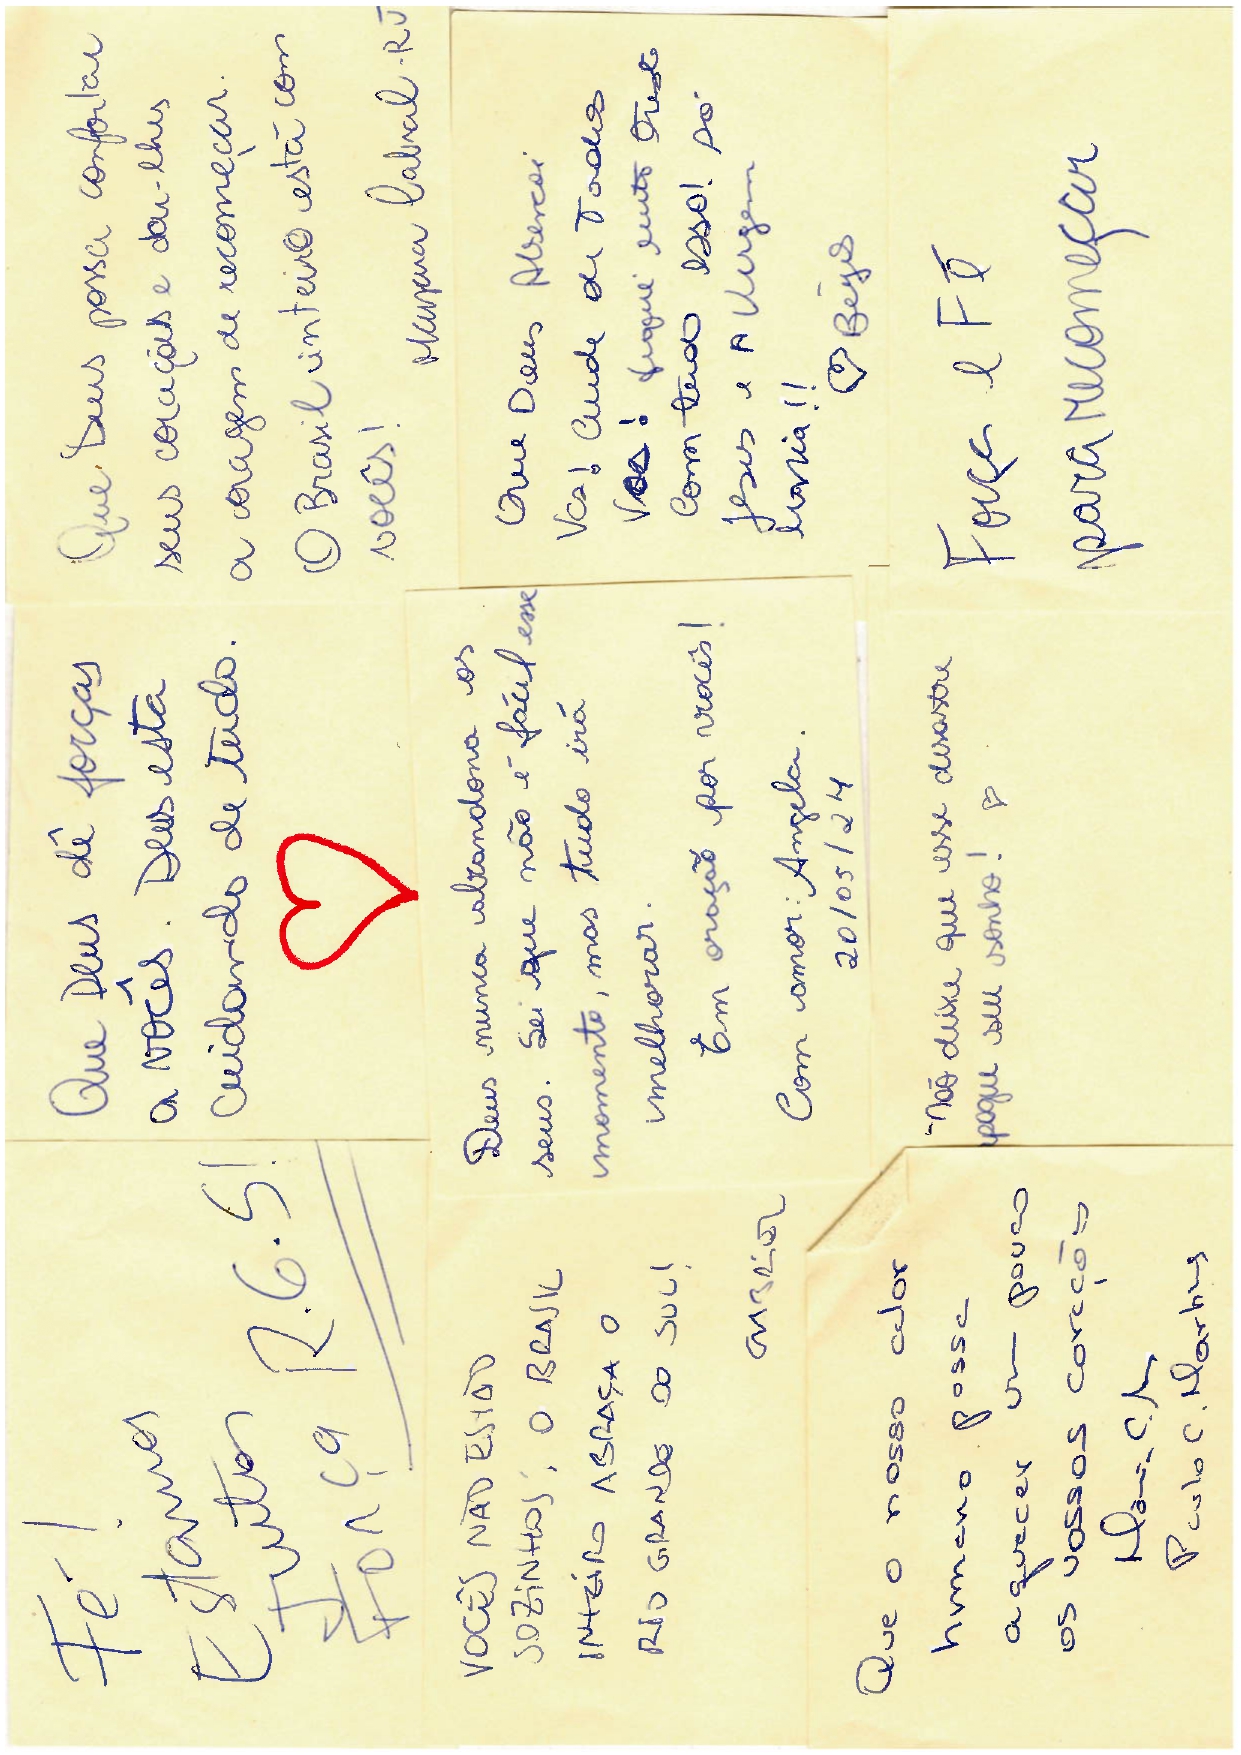 Fé!
Estamos
Juntos
Força R.G.S!
Que Deus dê forças
a vocês. Deus esta
cuidando de tudo.
Que Deus possa confortar
seus corações e dar-lhes
a coragem de recomeçar.
O Brasil inteiro está com
vocês!
Cabral - RJ
VOCÊS NÃO ESTÃO
SOZINHOS, O BRASIL
INTEIRO ABRAÇA O
RIO GRANDE DO SUL!
GABRIEL
Deus nunca abandona os
seus. Sei que não é fácil esse
momento, mas tudo irá
melhorar.
Em oração por vocês!
Com amor: Angela.
20/05/24
Que Deus Abençoi
Vcs! Cuide de Todos
Vcs! fiquei muito triste
Com tudo isso! Só
Jesus e A Virgem
Maria!!
Que o nosso calor
humano possa
aquecer um pouco
os vossos corações
Maria C.
Paulo C. Martins
"Não deixe que esse desastre
apague seu sonho!
Força e Fé
para recomeçar